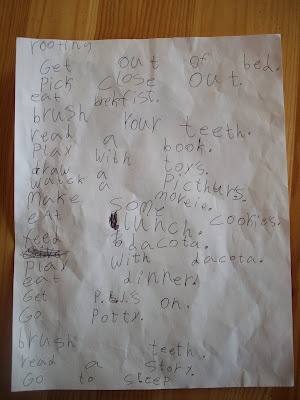 rooting
Get out of bed.
Pick close out.
eat brekfist.
brush your teeth.
read a book.
Play with toys.
draw a picthurs.
watck a moveie.
Make some cookies.
eat lunch.
feed dacota.
Play with dacota.
eat dinner.
Get P.J.s on.
Go Potty.
brush teeth.
read a story.
Go to sleep